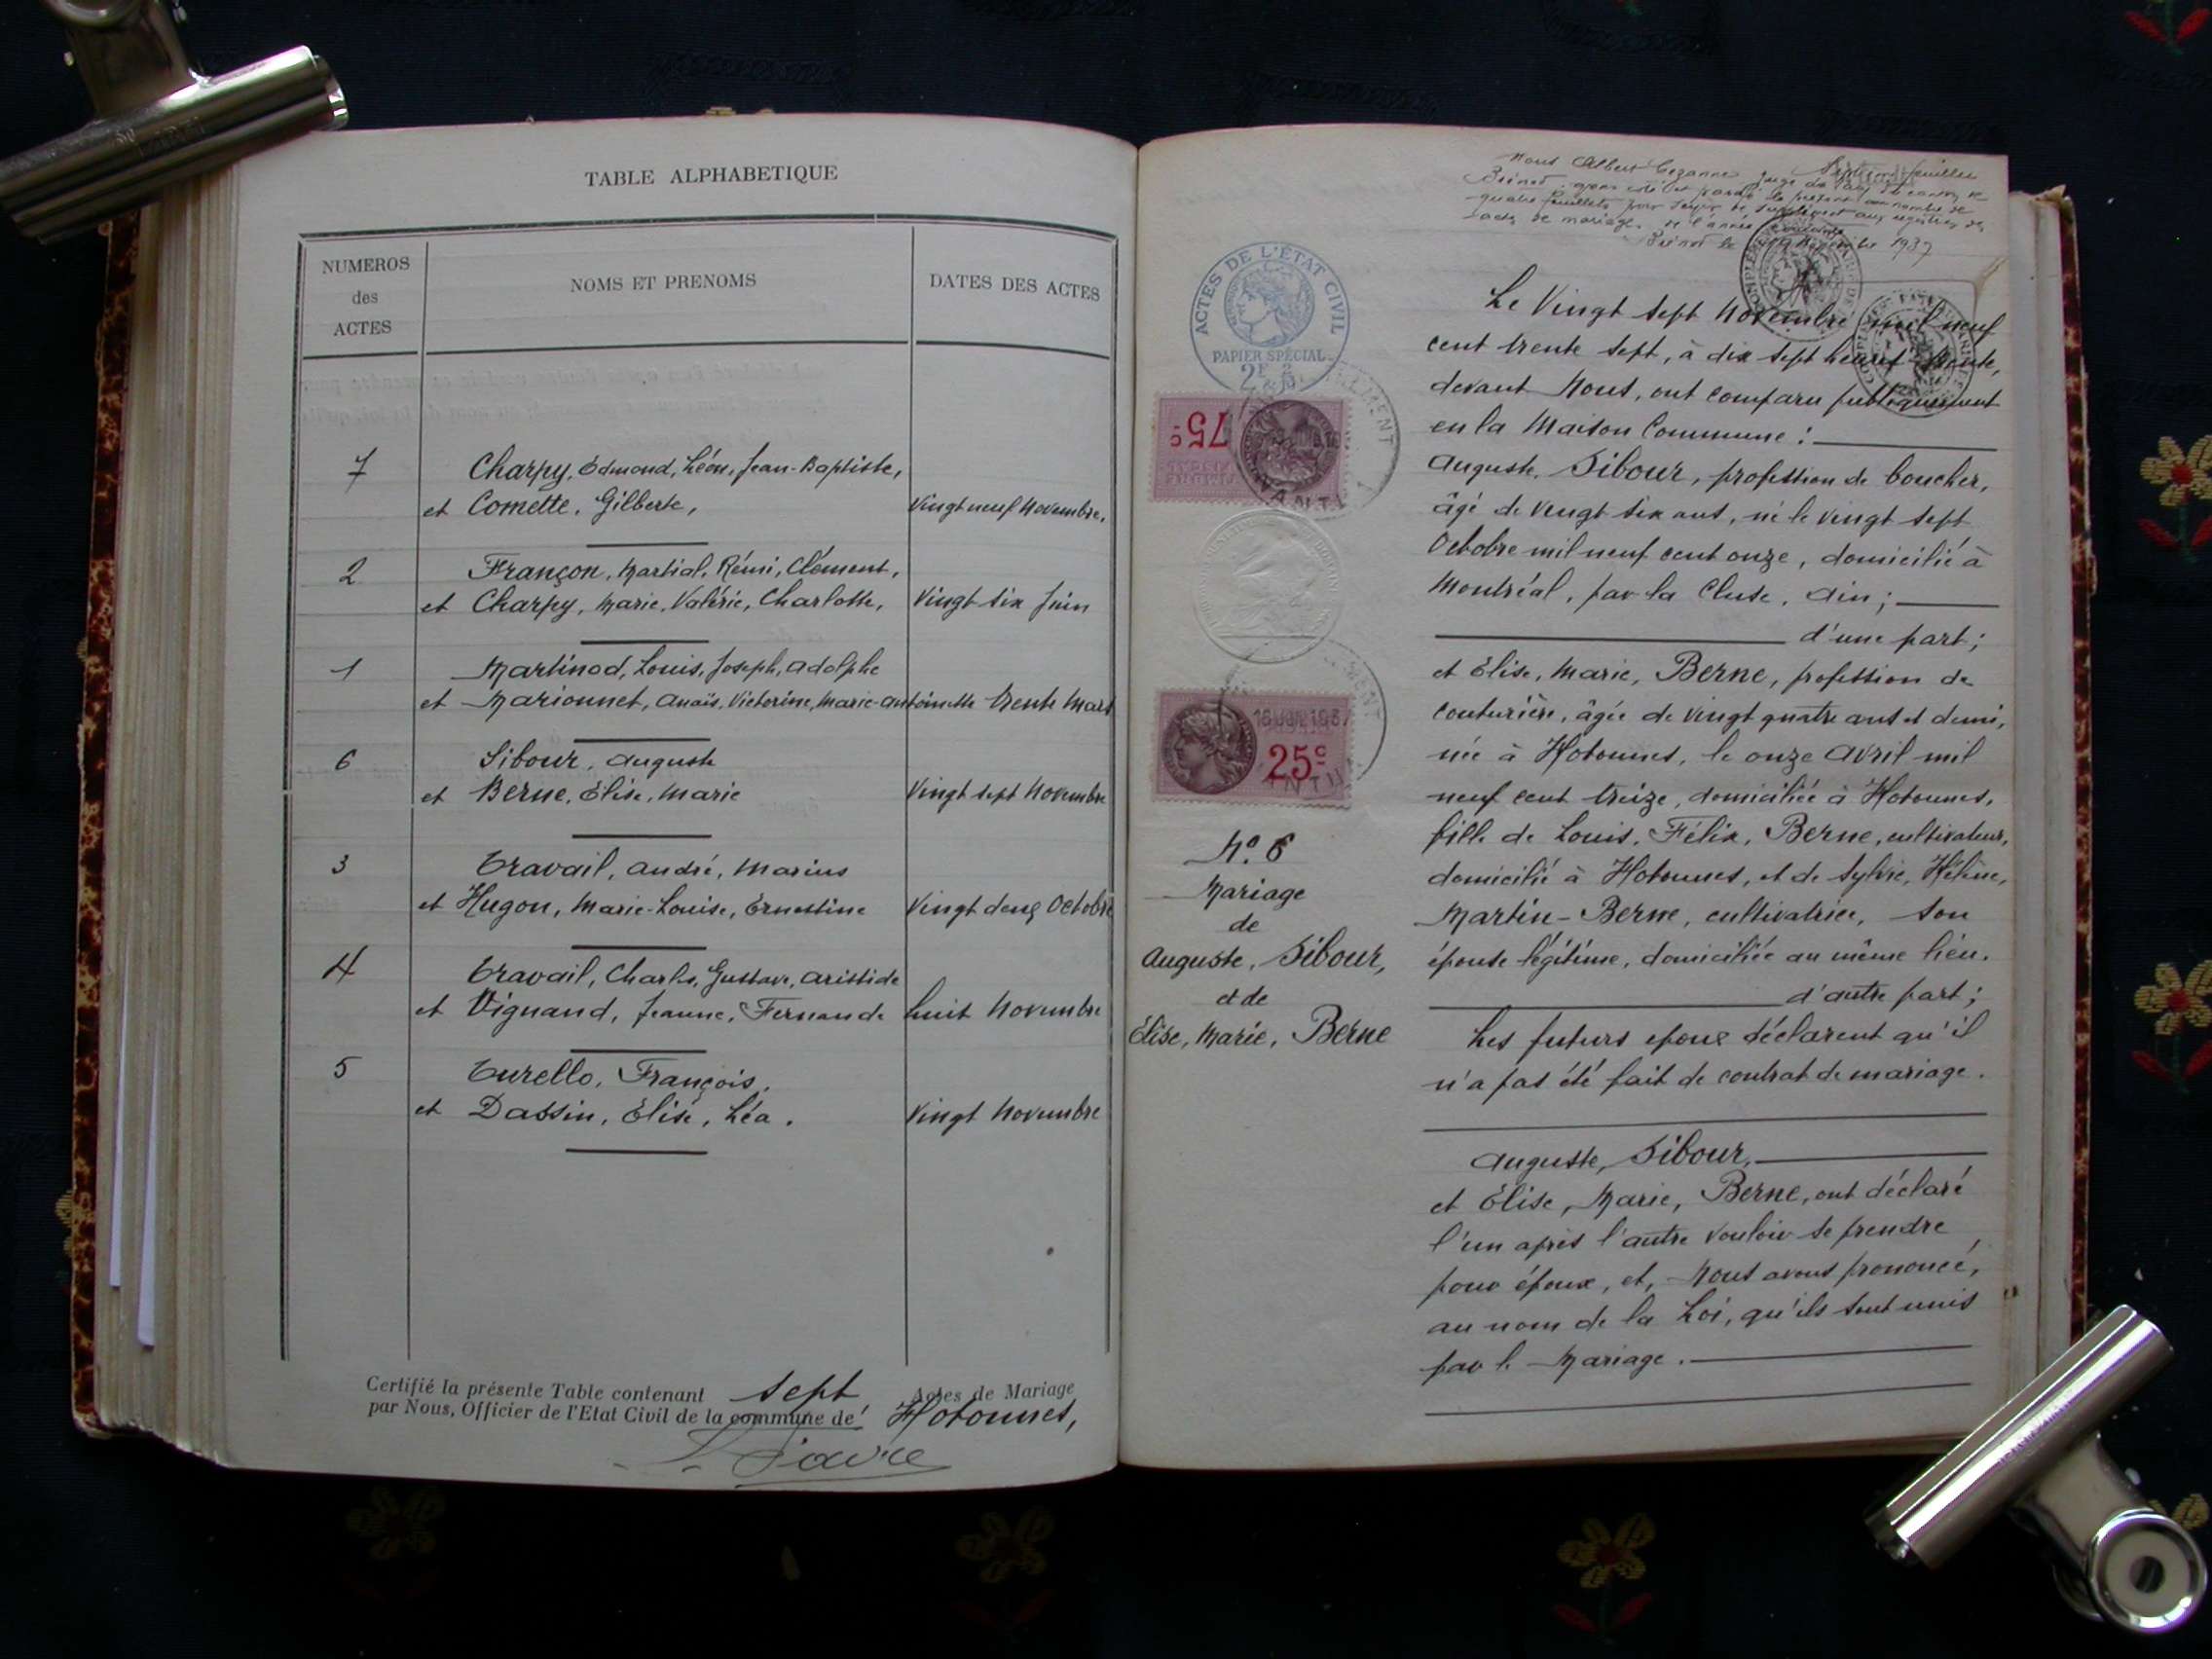 TABLE ALPHABETIQUE
NUMEROS
des
ACTES
NOMS ET PRENOMS
DATES DES ACTES
7 Charpy, Edmond, Léon, Jean-Baptiste,
et Comette, Gilberte, Vingt neuf Novembre,
2 Françon, Martial, Rémi, Clément,
et Charpy, Marie, Valérie, Charlotte, Vingt six Juin
1 Martinod, Louis, Joseph, Adolphe
et Marionnet, Anaïs, Victorine, Marie-Antoinette trente Mars
6 Sibour, Auguste
et Berne, Elise, Marie Vingt sept Novembre
3 Travail, André, Marius
et Hugon, Marie-Louise, Ernestine Vingt deux Octobre
4 Travail, Charles, Gustave, Aristide
et Vignand, Jeanne, Fernande huit Novembre
5 Turello, François,
et Dassin, Elise, Léa. Vingt Novembre
Certifié la présente Table contenant sept Actes de Mariage
par Nous, Officier de l'Etat Civil de la commune de Hotonnes,
Nous Albert Cezanne Juge de Paix du canton de
Brénod, avons coté et paraphé le présent au nombre de
quatre feuillets pour servir de supplément aux registres des
actes de mariage de l'année
Brénod le 1937
ACTES DE L'ÉTAT CIVIL
PAPIER SPÉCIAL
75c
25c
No. 6
Mariage
de
Auguste, Sibour,
et de
Elise, Marie, Berne
Le Vingt sept Novembre mil neuf
cent trente sept, à dix sept heures trente,
devant Nous, ont comparu publiquement
en la Maison Commune :
Auguste, Sibour, profession de boucher,
âgé de vingt six ans, né le vingt sept
Octobre mil neuf cent onze, domicilié à
Montréal, par la Cluse, Ain ;
d'une part ;
et Elise, Marie, Berne, profession de
couturière, âgée de vingt quatre ans et demi,
née à Hotonnes, le onze Avril mil
neuf cent treize, domiciliée à Hotonnes,
fille de Louis, Félix, Berne, cultivateur,
domicilié à Hotonnes, et de Sylvie, Hélène,
Martin-Berne, cultivatrice, son
épouse légitime, domiciliée au même lieu.
d'autre part ;
Les futurs epoux déclarent qu'il
n'a pas été fait de contrat de mariage.
Auguste, Sibour,
et Elise, Marie, Berne, ont déclaré
l'un après l'autre vouloir se prendre
pour époux, et, Nous avons prononcé,
au nom de la Loi, qu'ils sont unis
par le Mariage.